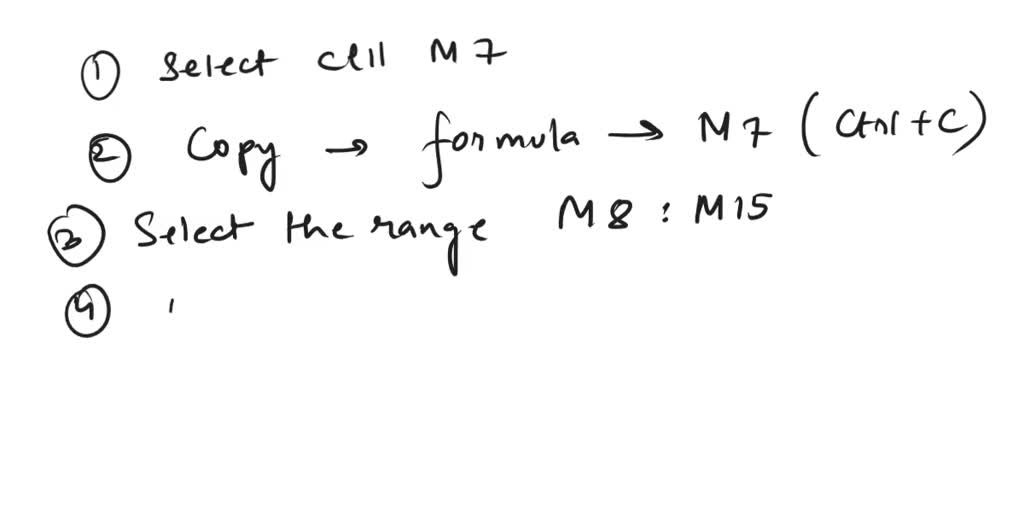 ① Select cell M7
② Copy → formula → M7 (Ctrl+C)
③ Select the range M8 : M15
④